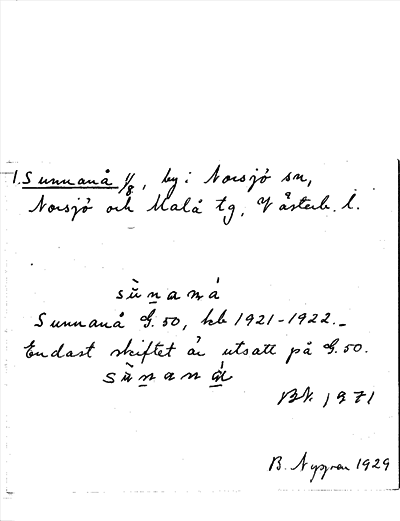 1. Sunnanå 1/8, by i Norsjö sn,
Norsjö och Malå tg, Västerb. l.
sùnaná
Sunnanå G. 50, kb 1921-1922.
Endast skiftet är utsatt på G. 50.
sùnaná
BN. 1971
B. Nygren 1929